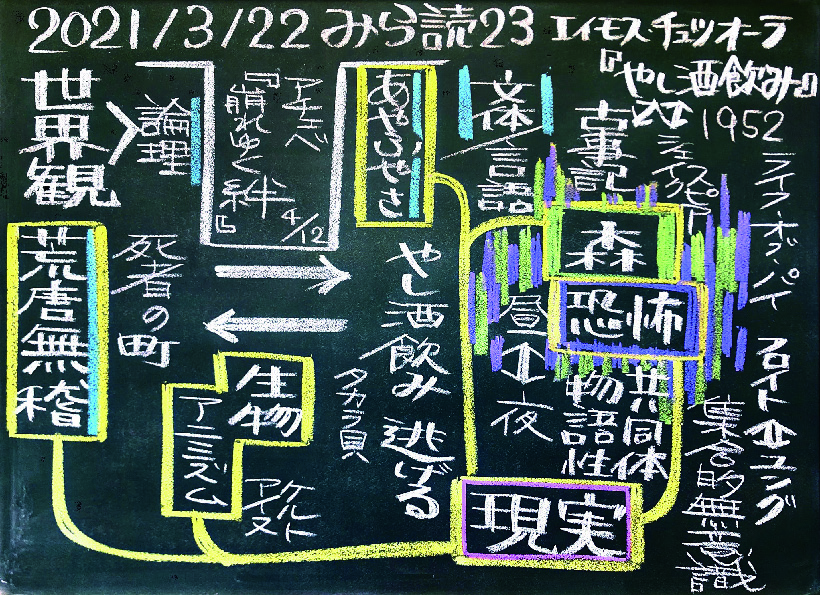 2021/3/22 みら読23 エイモス・チュツオーラ
『やし酒飲み』
1952
ライフ・オブ・パイ
フロイト⇔ユング
シェイクスピア
集合的無意識
古事記
森
恐怖
共同体
物語性
文体/言語
昼⇔夜
現実
あやふやさ
やし酒飲み 逃げる
タカラ貝
アチェベ
『崩れゆく絆』
4/12
論理
世界観
生物
アニミズム
ケルト
アイヌ
死者の町
荒唐無稽